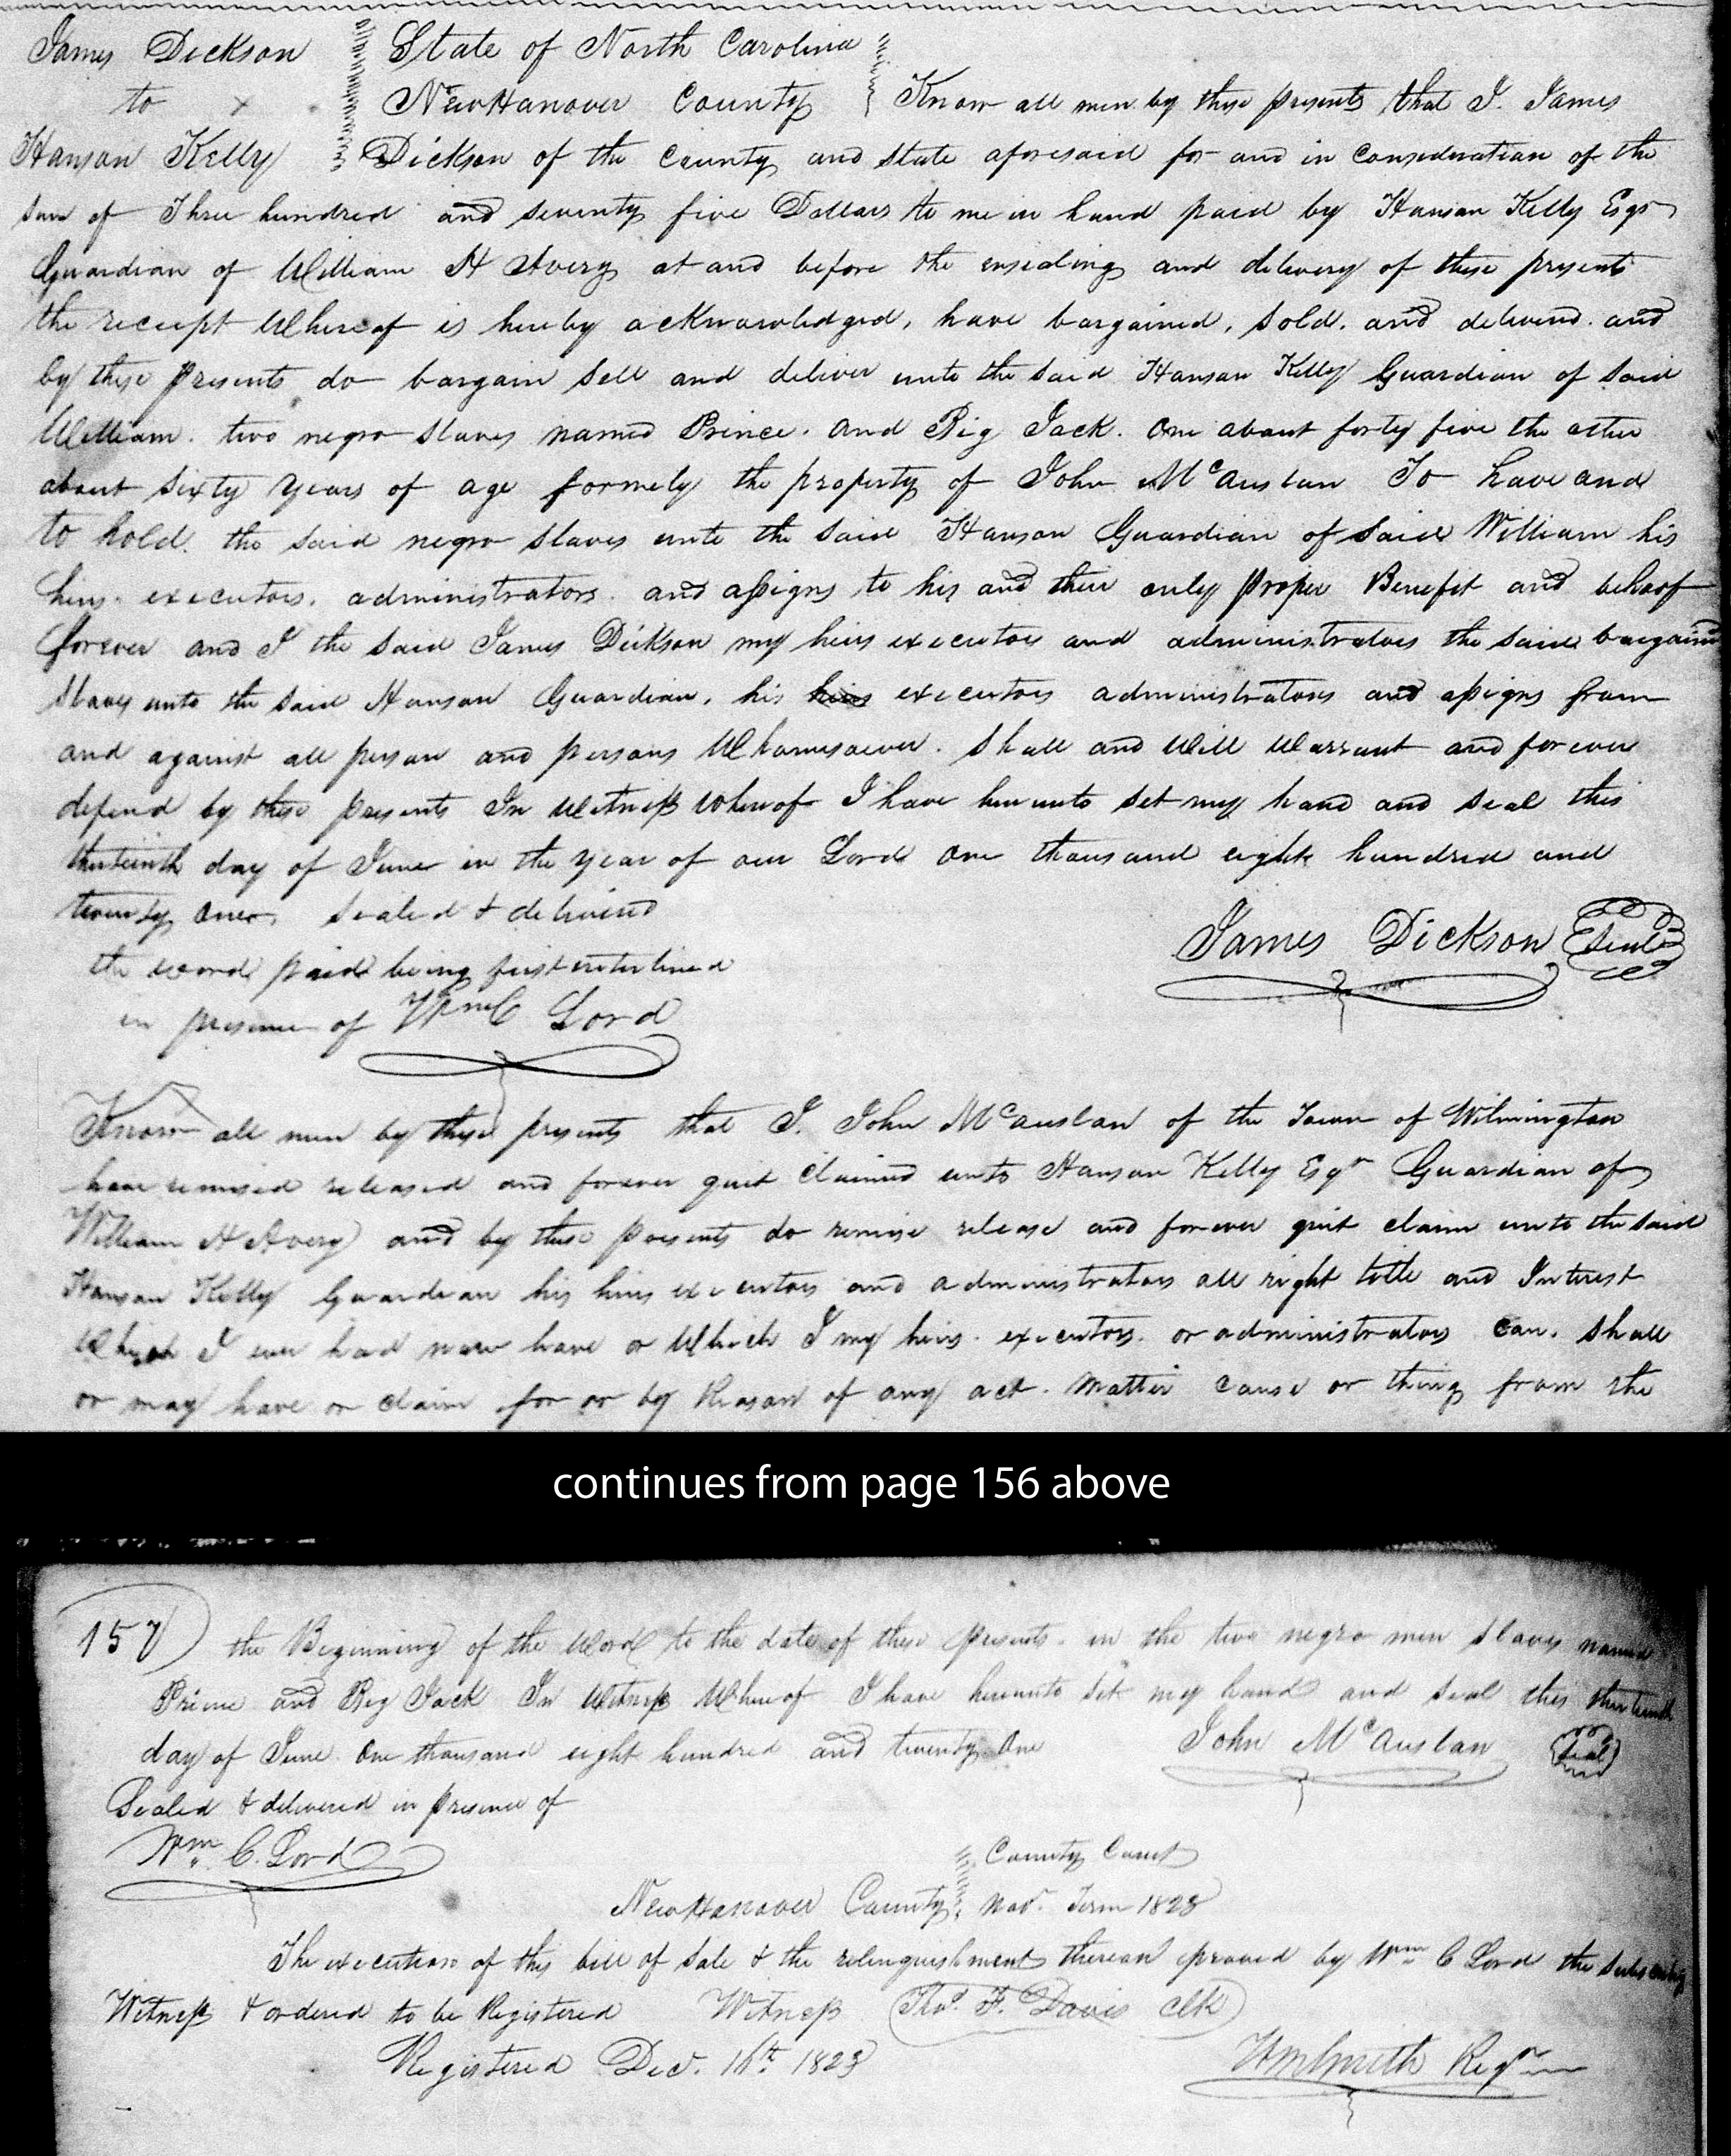 James Dickson
to x
Hanson Kelly
State of North Carolina
New Hanover County
Know all men by these presents that I. James
Dickson of the County and State aforesaid for and in Consideration of the
sum of Three hundred and seventy five Dollars to me in hand paid by Hanson Kelly Esqr
Guardian of William H Avery at and before the ensealing and delivery of these presents
the receipt Whereof is hereby acknowledged, have bargained, sold. and deliverd. and
by these presents do bargain sell and deliver unto the said Hanson Kelly Guardian of said
William. two negro slaves named Prince. and Big Jack. One about forty five the other
about sixty years of age formely the property of John McAuslan To have and
to hold. the said negro slaves unto the said Hanson Guardian of said William his
heirs. executors. administrators. and assigns to his and their only proper Benefit and behoof
forever and I the said James Dickson my heirs executors and administrators the said bargained
slaves unto the said Hanson Guardian, his heirs executors administrators and assigns from
and against all person and persons Whomsoever. shall and Will Warrant and forever
defend by these presents In Witness Whereof I have hereunto set my hand and seal this
thirteenth day of June in the year of our Lord one thousand eight hundred and
twenty one. sealed & delivered
the word paid being first interlined
in presence of Wm C Lord
James Dickson Seal
Know all men by these presents that I. John McAuslan of the Town of Wilmington
have remised released and forever quit claimed unto Hanson Kelly Esqr Guardian of
William H Avery and by these presents do remise release and forever quit claim unto the said
Hanson Kelly Guardian his heirs executors and administrators all right title and Interest
Which I ever had now have or Which I my heirs. executors. or administrators can. shall
or may have or claim for or by Reason of any act. matter cause or thing from the
continues from page 156 above
157
the Beginning of the World to the date of these presents. in the two negro men slaves named
Prince and Big Jack In Witness Whereof I have hereunto set my hand and seal this thirteenth
day of June. One thousand eight hundred and twenty One
John McAuslan Seal
Sealed & delivered in presence of
Wm. C. Lord
County Court
New Hanover County Nov. Term 1823
The execution of this bill of sale & the relinquishment thereon proved by Wm C Lord the subscribing
Witness & ordered to be Registered Witness Thos. F. Davis Clk
Registered Dec. 16th 1823
Wm Smith Regr